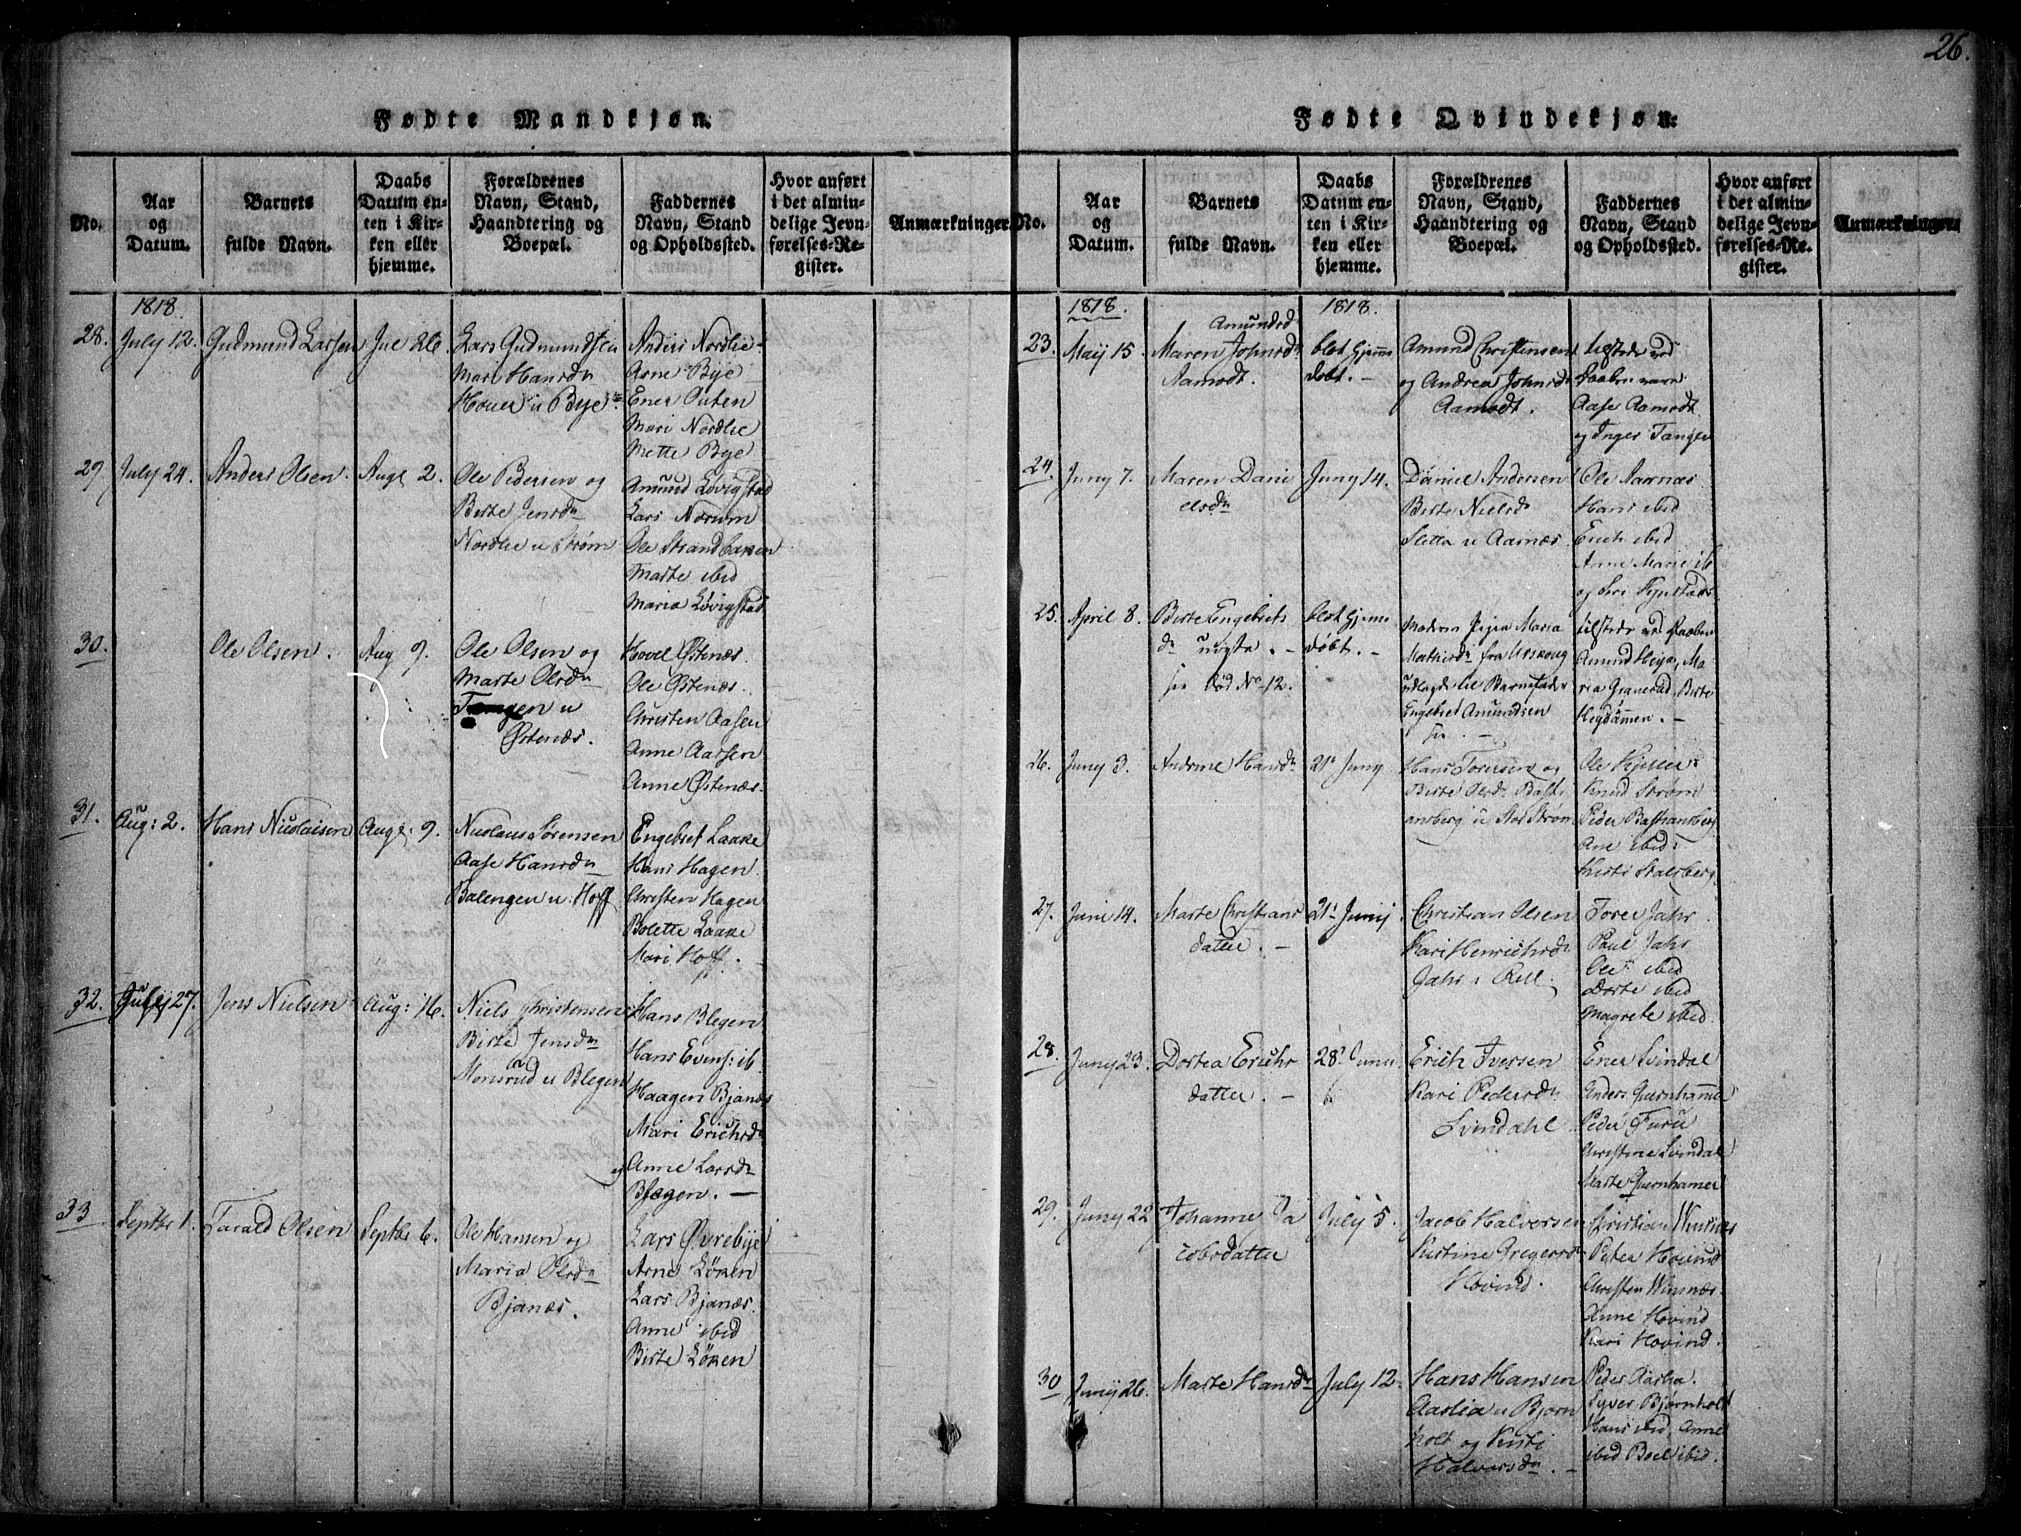 26.
Fødte Mandkjøn.
No.
Aar
og
Datum.
Barnets
fulde Navn.
Daabs
Datum en-
ten i Kir-
ken eller
hjemme.
Forældrenes
Navn, Stand,
Haandtering og
Boepæl.
Faddernes
Navn, Stand
og Opholdssted.
Hvor anført
i det almin-
delige Jevn-
førelses-Re-
gister.
Anmærkninger
1818.
28.
July 12.
Gudmund Larsen
Jul 26.
Lars Gudmundsen
Mari Hansdn
Houer u Bye
Anders Nordlie
Arne Bye
Ener Outen
Mari Nordlie
Mette Bye
29.
July 24.
Anders Olsen.
Augt 2.
Ole Pedersen og
Birte Jensdn
Nordlie u Strøm
Amund Løvigstad
Lars Norum
Ole Strandbakken
Marte ibid
Maria Løvigstad
30.
Ole Olsen.
Aug 9.
Ole Olsen og
Marte Olsdn
Tangen u
Østenæs.
Hovel Østenæs.
Ole Østenæs.
Christen Aasen
Anne Aarsen
Anne Østenæs.
31.
Aug: 2.
Hans Nicolaisen
Augt: 9.
Nicolaus Sørensen
Aase Hansdn
Balengen u. Hoff
Engebret Laake
Hans Hagen.
Christen Hagen
Bolette Laake
Mari Hoff.
32.
July 27.
Jens Nielsen
Aug: 16.
Niels Christensen
Birte Jensdn
Monsrud u Blegen
Hans Blegen
Hans Evens: ib.
Haagen Bjanæs
Mari Erichsdn
og Anne Larsdn
Blegen.
33
Septbr 1.
Tarald Olsen
Septbr 6.
Ole Hansen og
Maria Olsdn
Bjanæs.
Lars Øvrebye
Arne Løken
Lars Bjanæs.
Anne ibid
Birte Løken
Fødte Qvindekjøn.
No.
Aar
og
Datum.
Barnets
fulde Navn.
Daabs
Datum en-
ten i Kir-
ken eller
hjemme.
Forældrenes
Navn, Stand,
Haandtering og
Boepæl.
Faddernes
Navn, Stand
og Opholdssted.
Hvor anført
i det almin-
delige Jevn-
førelses-Re-
gister.
Anmærkninger
1818.
1818.
23.
May 15.
Amundsd
Maren Johnsdn
Aamodt.
blot hjemme
døbt.
Amund Christensen
og Andrea Johnsdn
Aamodt.
tilstede ved
Daaben vare
Aase Aamodt
og Inger Tangen
24.
Juny 7.
Maren Dani
elsdn
Juny 14.
Daniel Andersen
Birte Nielsdn
Sletta u Aarnæs.
Ole Aarnæs
Hans ibid
Erich ibid
Anne Marie ib
og Siri
25.
April 8.
Birte Engebrets
dn uægte.
fød No 12.
blot hjemme
døbt.
Moderen Pigen Maria
Mathisdn fra Urskoug
udlagde til Barnefader
Engebret Amundsen
tilstede ved Daaben
Amund Heja, Ma
ria Granerud, Birte
Hegdammen.
26.
Juny 3.
Andrine Hansdn
21 Juny
Hans Toresen og
Birte Olsdn Basti
ansberg u Stor Strøm
Ole
Knud Strøm
Peder Bastiansberg
Ane ibid:
Kirsti
27.
Juni 14.
Marte Christians
datter.
21 Junij
Christian Olsen
Kari Henrichsdn
Jahr i Eell.
Torer Jahr
Paul Jahr
Ole ibid
Dorte ibid
Magrete ibid.
28.
Juny 23.
Dortea Erichs
datter.
28 Juni
Erich Iversen
Kari Pedersdn
Svindahl.
Ener Svindal
Anders Quernhammer
Peder Furu
Christine Svindal
Marte Quernhamer
29.
Juny 22
Johanne Ja
cobsdatter
July 5.
Jacob Halvorsen
Kirstine Gregersdn
Hovind.
Christian Winsnæs
Peter Hovind
Christen Winsnæs.
Anne Hovind
Kari Hovind.
30
Junij 26.
Marte Hansdn
July 12.
Hans Hansen
Aaslia u Bjørn
holt og Kirsti
Halvorsdn.
Peder Aaslia.
Syver Bjørnholt
Hans ibid, Anne
ibid Boel ibid.